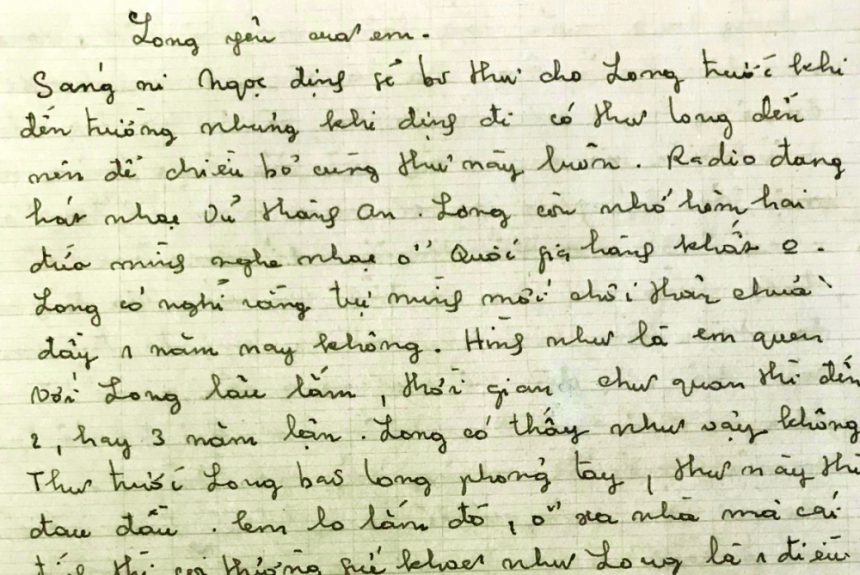 Long yêu của em.
Sáng ni Ngọc định sẽ bỏ thư cho Long trước khi
đến trường nhưng khi định đi có thư Long đến
nên để chiều bỏ cùng thư này luôn. Radio đang
hát nhạc Vũ Thành An. Long còn nhớ hôm hai
đứa mình nghe nhạc ở Quốc gia hàng không.
Long có nghĩ rằng tụi mình mới chơi thân chưa
đầy 1 năm nay không. Hình như là em quen
với Long lâu lắm, thời gian như quen thì đến
2, hay 3 năm lận. Long có thấy như vậy không
Thư trước Long bảo Long phỏng tay, thư này thì
đau đầu. Em lo lắm đó, ở xa nhà mà cái
thì coi thường sức khoẻ như Long là 1 điều